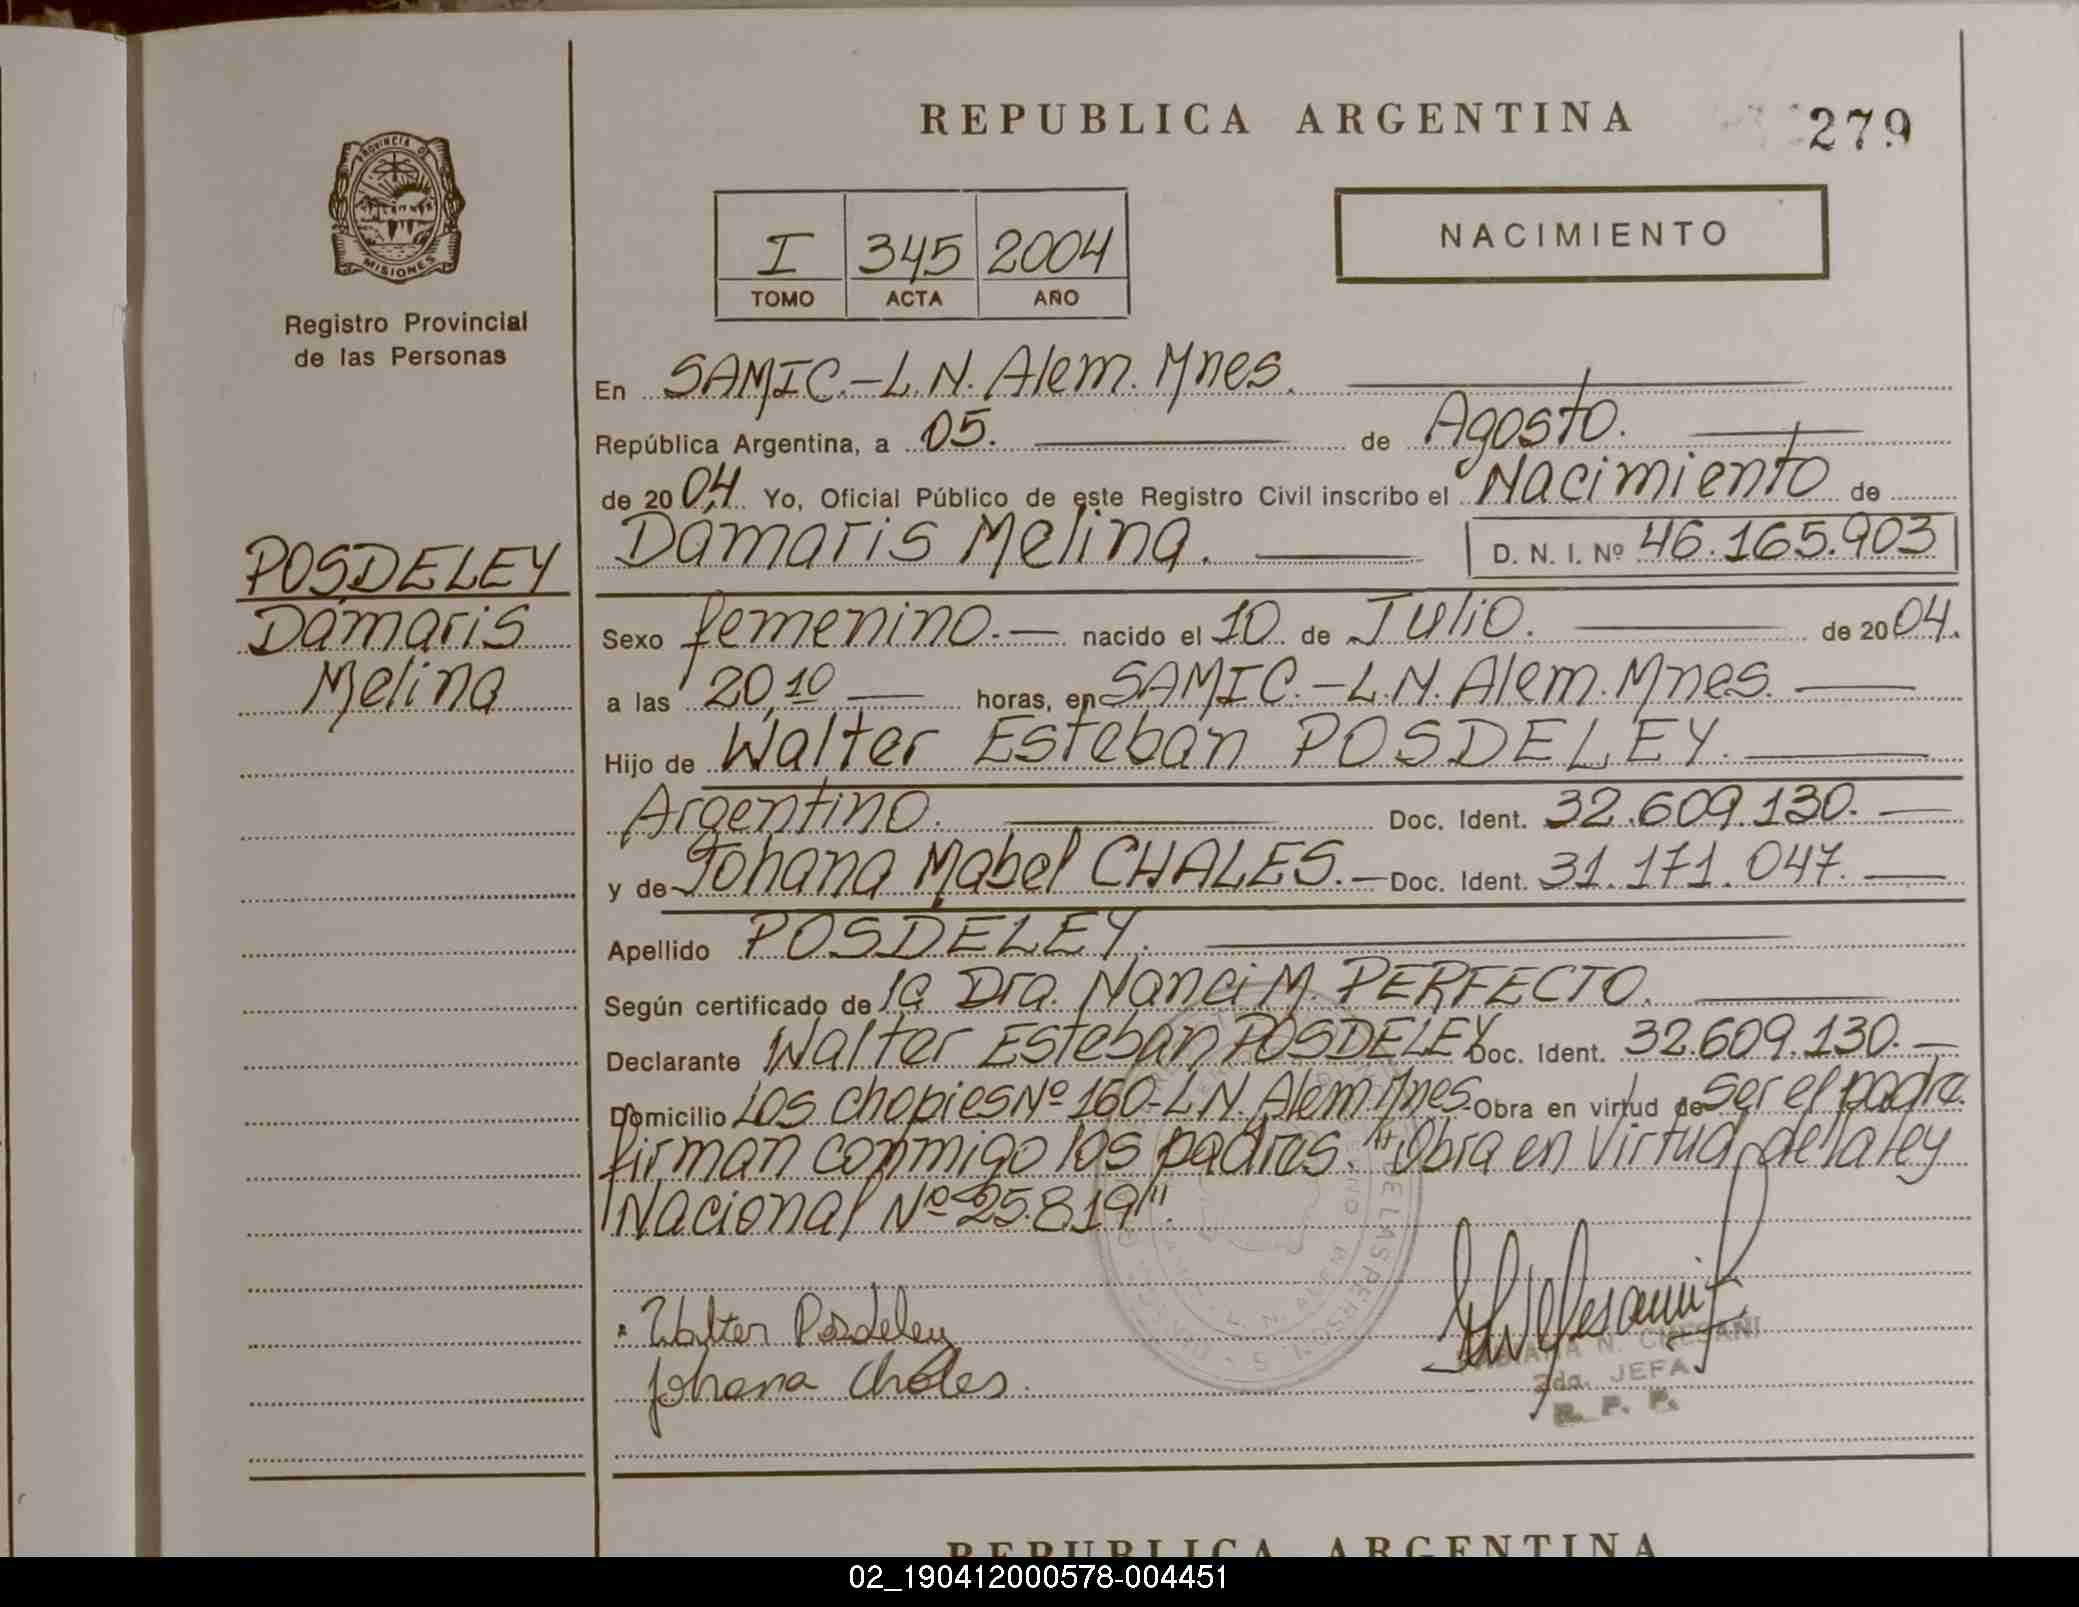 REPUBLICA ARGENTINA
279
PROVINCIA DE
MISIONES
Registro Provincial
de las Personas
I 345 2004
TOMO ACTA AÑO
NACIMIENTO
En SAMIC.-L.N. Alem. Mnes.
República Argentina, a 05. de Agosto.
de 2004 Yo, Oficial Público de este Registro Civil inscribo el Nacimiento de
Dámaris Melina. D. N. I. Nº 46.165.903
POSDELEY
Dámaris
Melina
Sexo femenino.- nacido el 10 de Julio. de 2004.
a las 20,10 horas, en SAMIC.-L.N. Alem. Mnes.
Hijo de Walter Esteban POSDELEY.
Argentino. Doc. Ident. 32.609.130.-
y de Johana Mabel CHALES.- Doc. Ident. 31.171.047.
Apellido POSDELEY.
Según certificado de la Dra. Nanci M. PERFECTO.
Declarante Walter Esteban POSDELEY Doc. Ident. 32.609.130.-
Domicilio Los chopies Nº 160-L.N. Alem. Mnes. Obra en virtud de ser el padre.
firman conmigo los padres. "Obra en Virtud de la ley
Nacional Nº 25.819".
Walter Posdeley
Johana Chales.
N. CHESANI
2da. JEFA
R. P. P.
REPUBLICA ARGENTINA
02_190412000578-004451